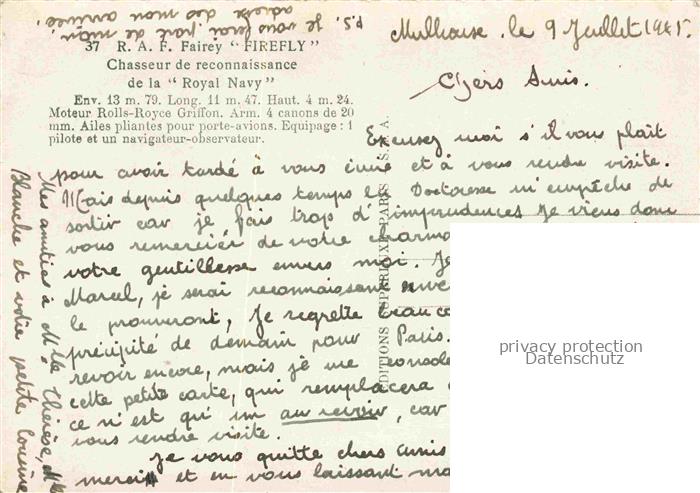 P.S. Je vous ferai part de mon
adresse dès mon arrivée.
37 R. A. F. Fairey "FIREFLY"
Chasseur de reconnaissance
de la "Royal Navy"
Env. 13 m. 79. Long. 11 m. 47. Haut. 4 m. 24.
Moteur Rolls-Royce Griffon. Arm. 4 canons de 20
mm. Ailes pliantes pour porte-avions. Equipage : 1
pilote et un navigateur-observateur.
Mulhouse. le 9 Juillet 1945.
Chers Amis.
Excusez moi s'il vous plaît
pour avoir tardé à vous écrire et à vous rendre visite.
Mais depuis quelques temps la Doctoresse m'empêche de
sortir car je fais trop d'imprudences je viens donc
vous remercier de votre
votre gentillesse envers moi. Je
Marcel, je serai reconnaissant
le prouveront, Je regrette
précipité de demain pour Paris.
revoir encore, mais je me console
cette petite carte, qui remplacera
ce n'est qu'un au revoir, car
vous rendre visite.
Je vous quitte chers amis
merci et en vous laissant
Mes amitiés à Mlle Thérèse,
Blanche et votre petite cousine
EDITIONS SUPERLUXE PARIS
privacy protection
Datenschutz